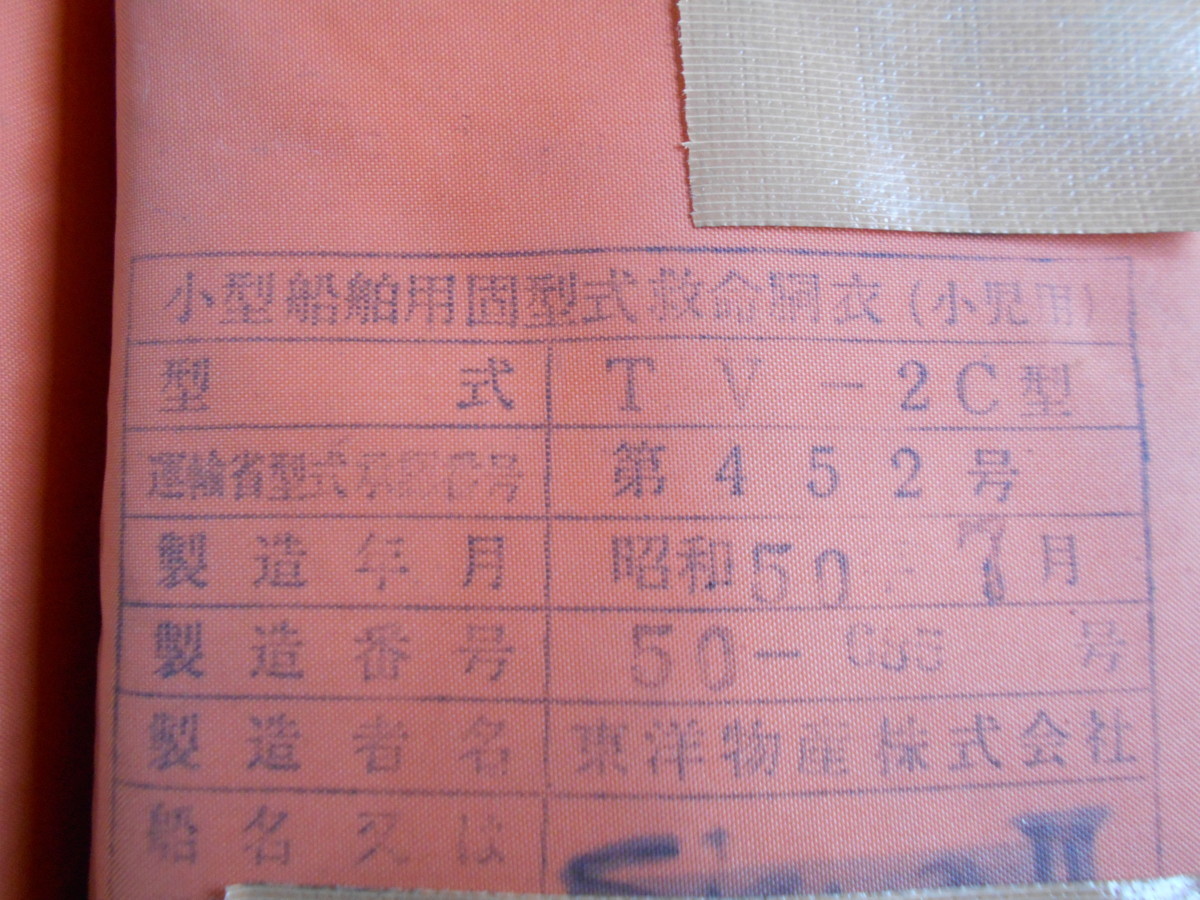 小型船舶用固型式救命胴衣(小児用)
型式 TV-2C型
運輸省型式承認番号 第452号
製造年月 昭和50 7月
製造番号 50- 号
製造者名 東洋物産株式会社
船名又は